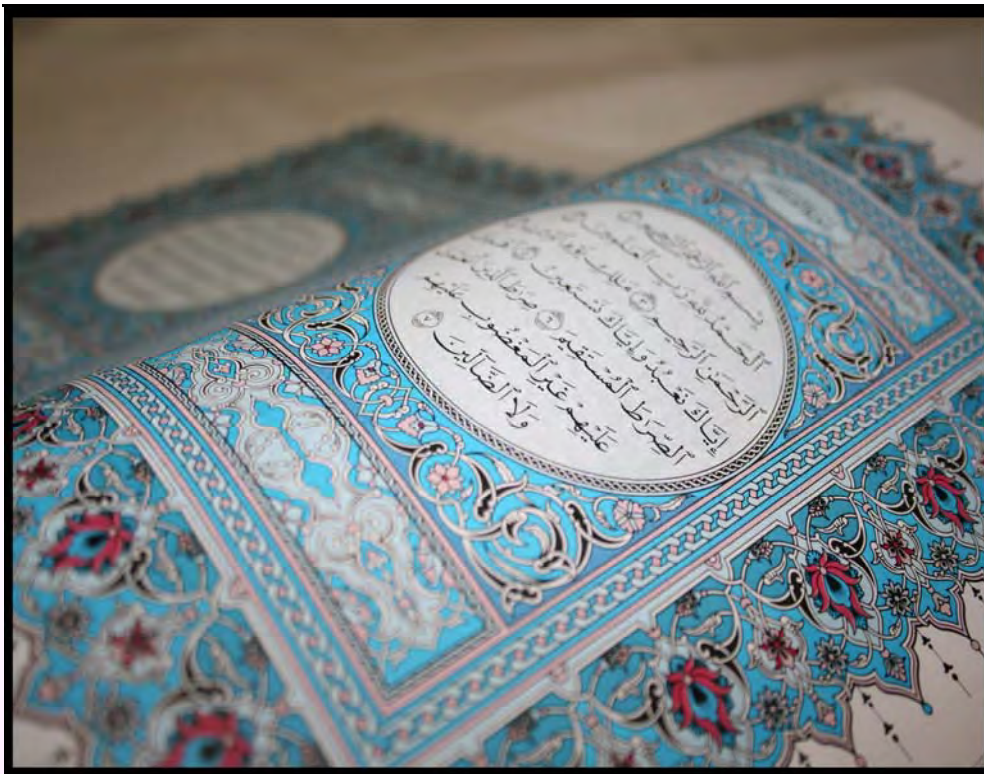 بِسْمِ ٱللَّهِ ٱلرَّحْمَٰنِ ٱلرَّحِيمِ
ٱلْحَمْدُ لِلَّهِ رَبِّ ٱلْعَٰلَمِينَ
ٱلرَّحْمَٰنِ ٱلرَّحِيمِ ٣ مَٰلِكِ يَوْمِ
إِيَّاكَ نَعْبُدُ وَإِيَّاكَ نَسْتَعِينُ ٥
ٱلصِّرَٰطَ ٱلْمُسْتَقِيمَ ٦ صِرَٰطَ ٱلَّذِينَ
عَلَيْهِمْ غَيْرِ ٱلْمَغْضُوبِ عَلَيْهِمْ
وَلَا ٱلضَّآلِّينَ ٧